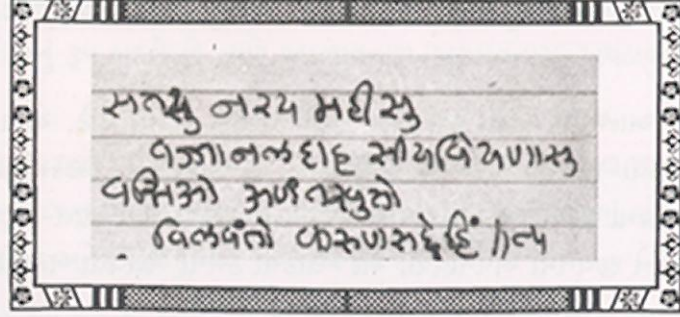 સત્તસુ નરય મહીસુ
વજ્જાનલદાહ સીયવિયણાસુ
વસિઓ અણંતખુત્તો
વિલવંતો કરુણસદ્દેહિં ॥